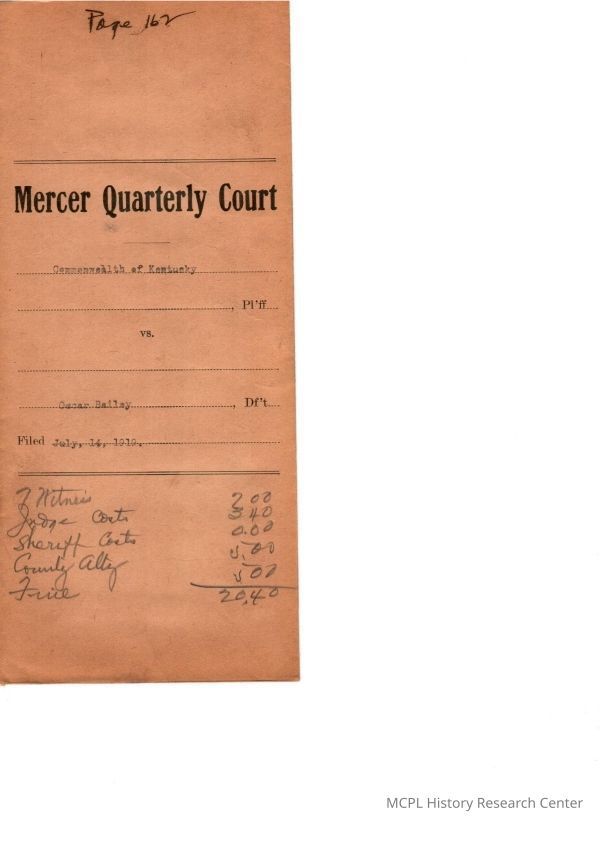 Page 162
Mercer Quarterly Court
Commonwealth of Kentucky
, Pl'ff.
vs.
Oscar Bailey , Df't.
Filed July, 14, 1919.
7 Witness 7 00
Judge Costs 3 40
Sheriff Costs 0.00
County Atty 5.00
Fine 5 00
20.40
MCPL History Research Center